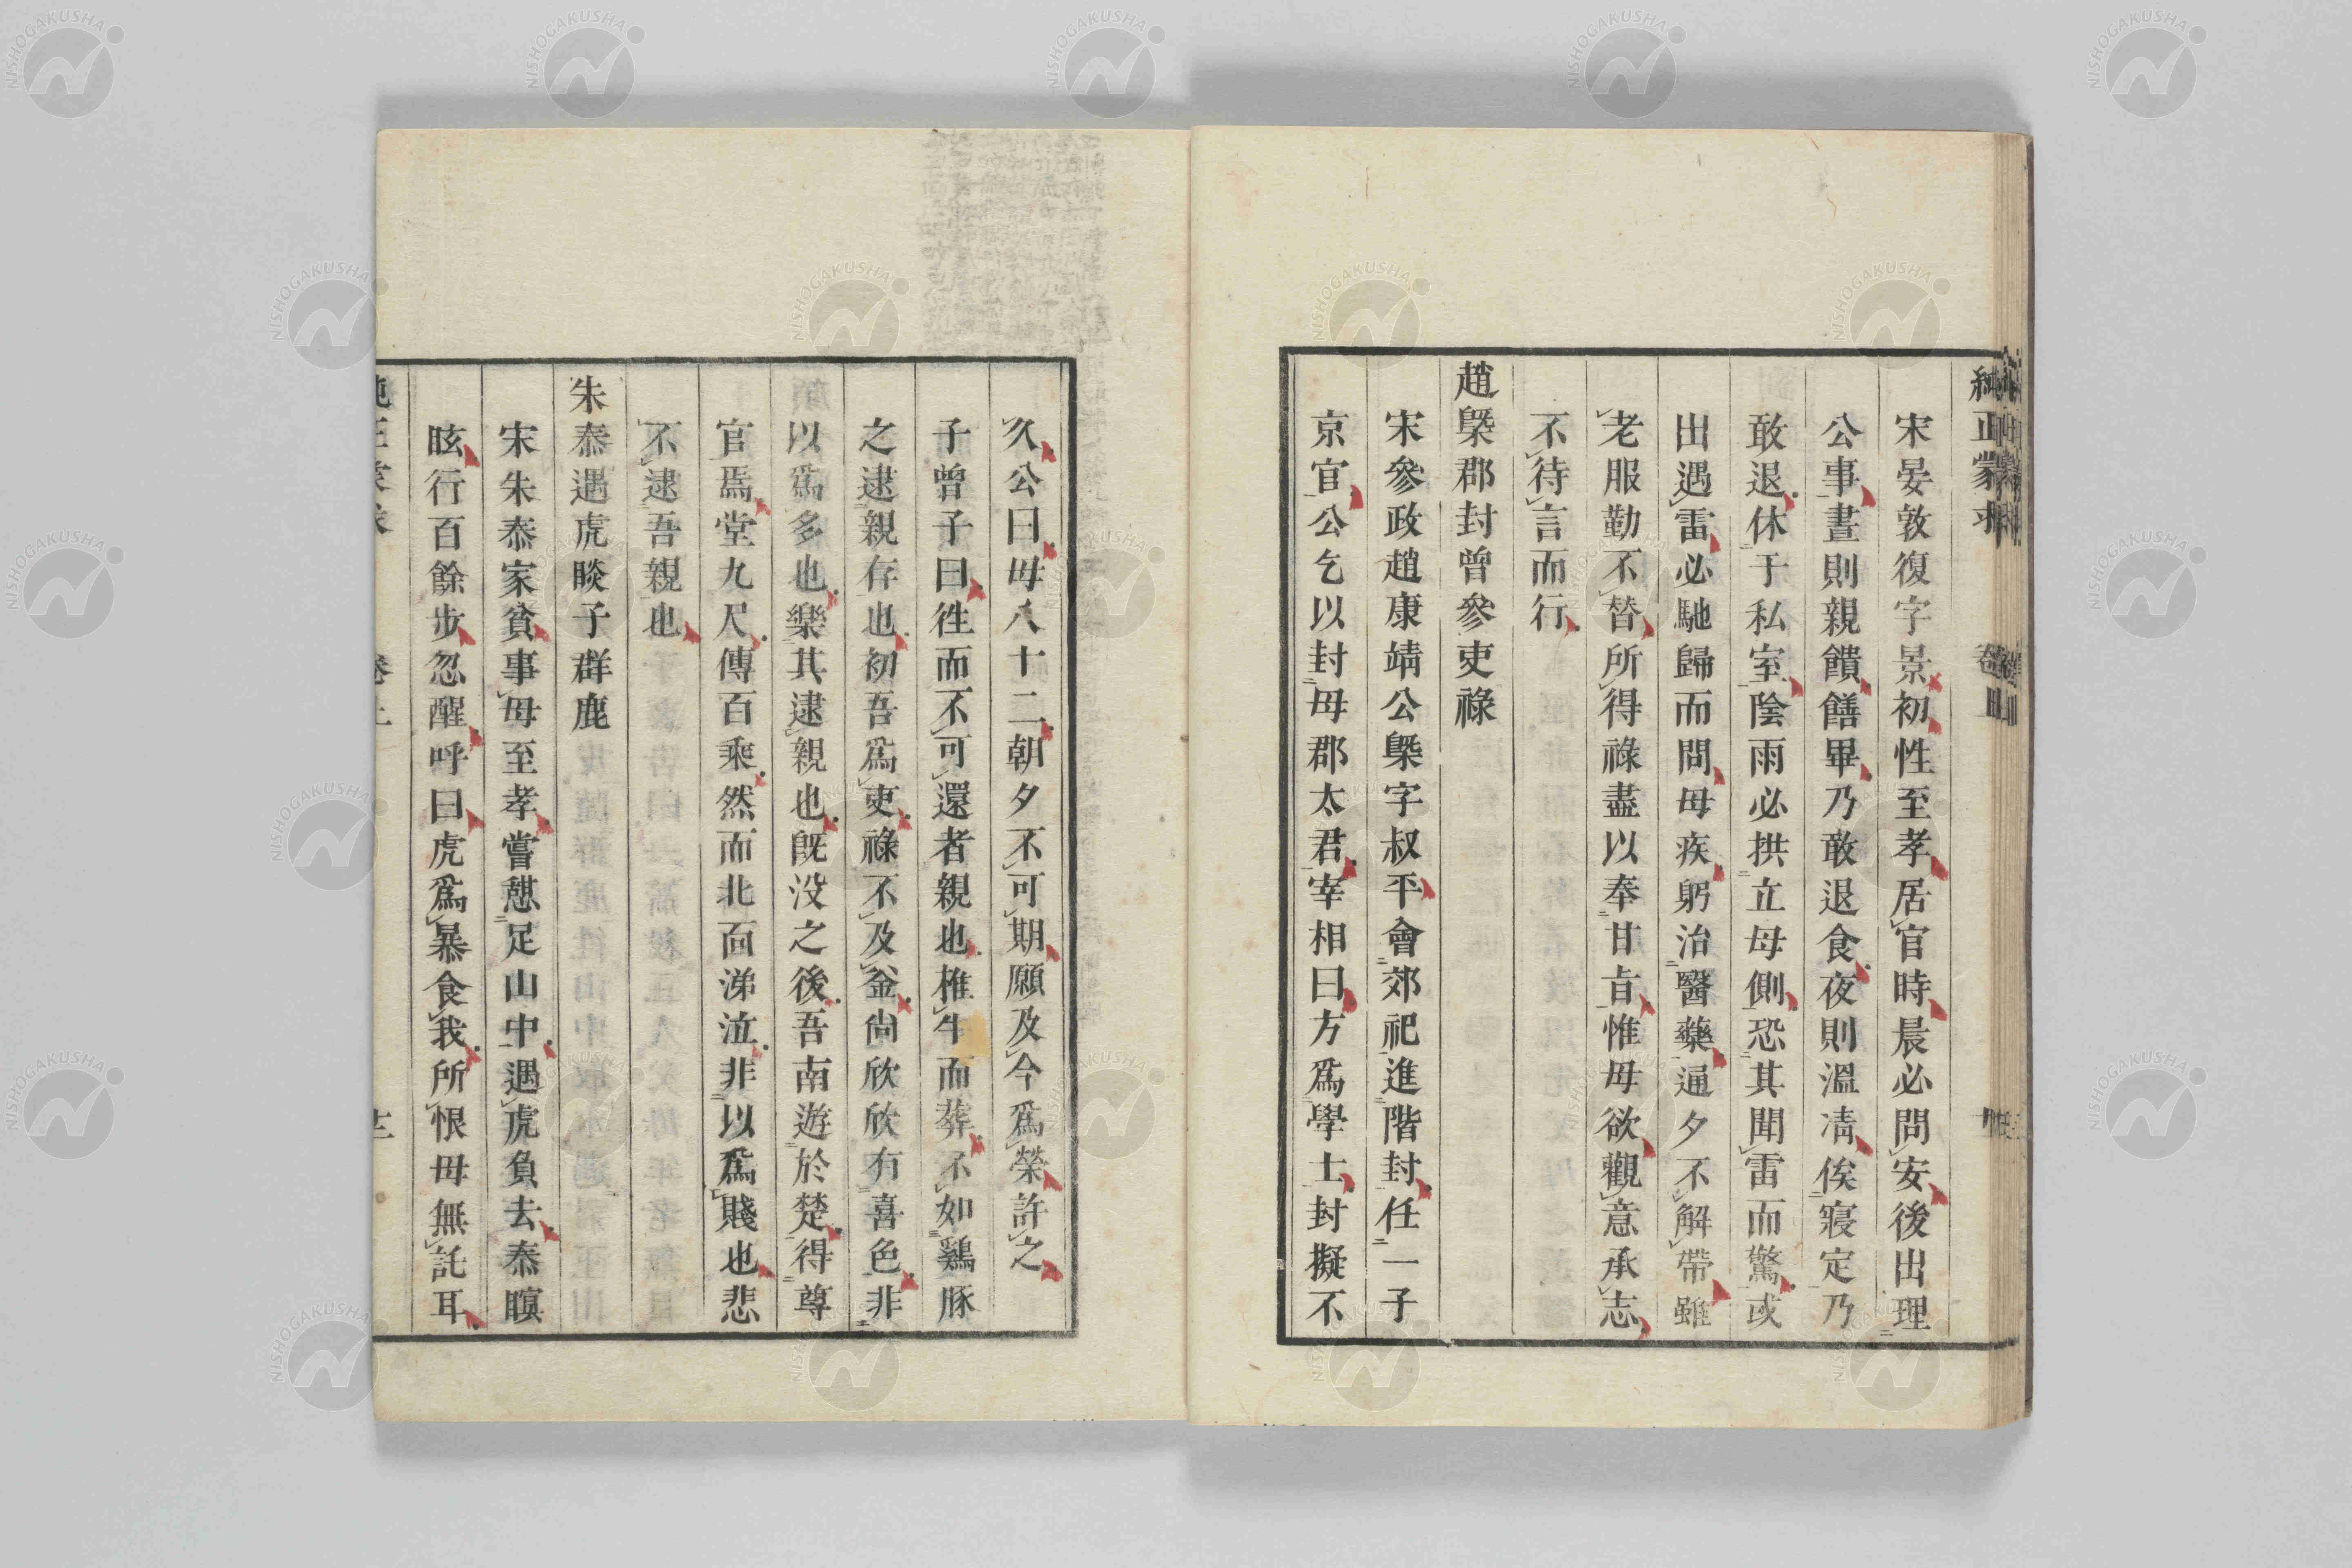 純正蒙求
卷上
宋晏敦復字景初性至孝居官時晨必問安後出理
公事晝則親饋饍畢乃敢退食夜則溫凊俟寢定乃
敢退休于私室陰雨必拱立母側恐其聞雷而驚或
出遇雷必馳歸而問母疾躬治醫藥通夕不解帶雖
老服勤不替所得祿盡以奉甘旨惟母欲觀意承志
不待言而行
趙槩郡封曾參吏祿
宋參政趙康靖公槩字叔平會郊祀進階封任一子
京官公乞以封母郡太君宰相曰方爲學士封擬不
久公曰母八十二朝夕不可期願及今爲榮許之
子曾子曰徃而不可還者親也椎牛而葬不如鷄豚
之逮親存也初吾爲吏祿不及釡尙欣欣有喜色非
以爲多也樂其逮親也旣没之後吾南遊於楚得尊
官焉堂九尺傳百乘然而北面涕泣非以爲賤也悲
不逮吾親也
朱泰遇虎睒子群鹿
宋朱泰家貧事母至孝嘗憇足山中遇虎負去泰瞑
眩行百餘步忽醒呼曰虎爲暴食我所恨母無託耳
純正蒙求
卷上
十二
NISHOGAKUSHA